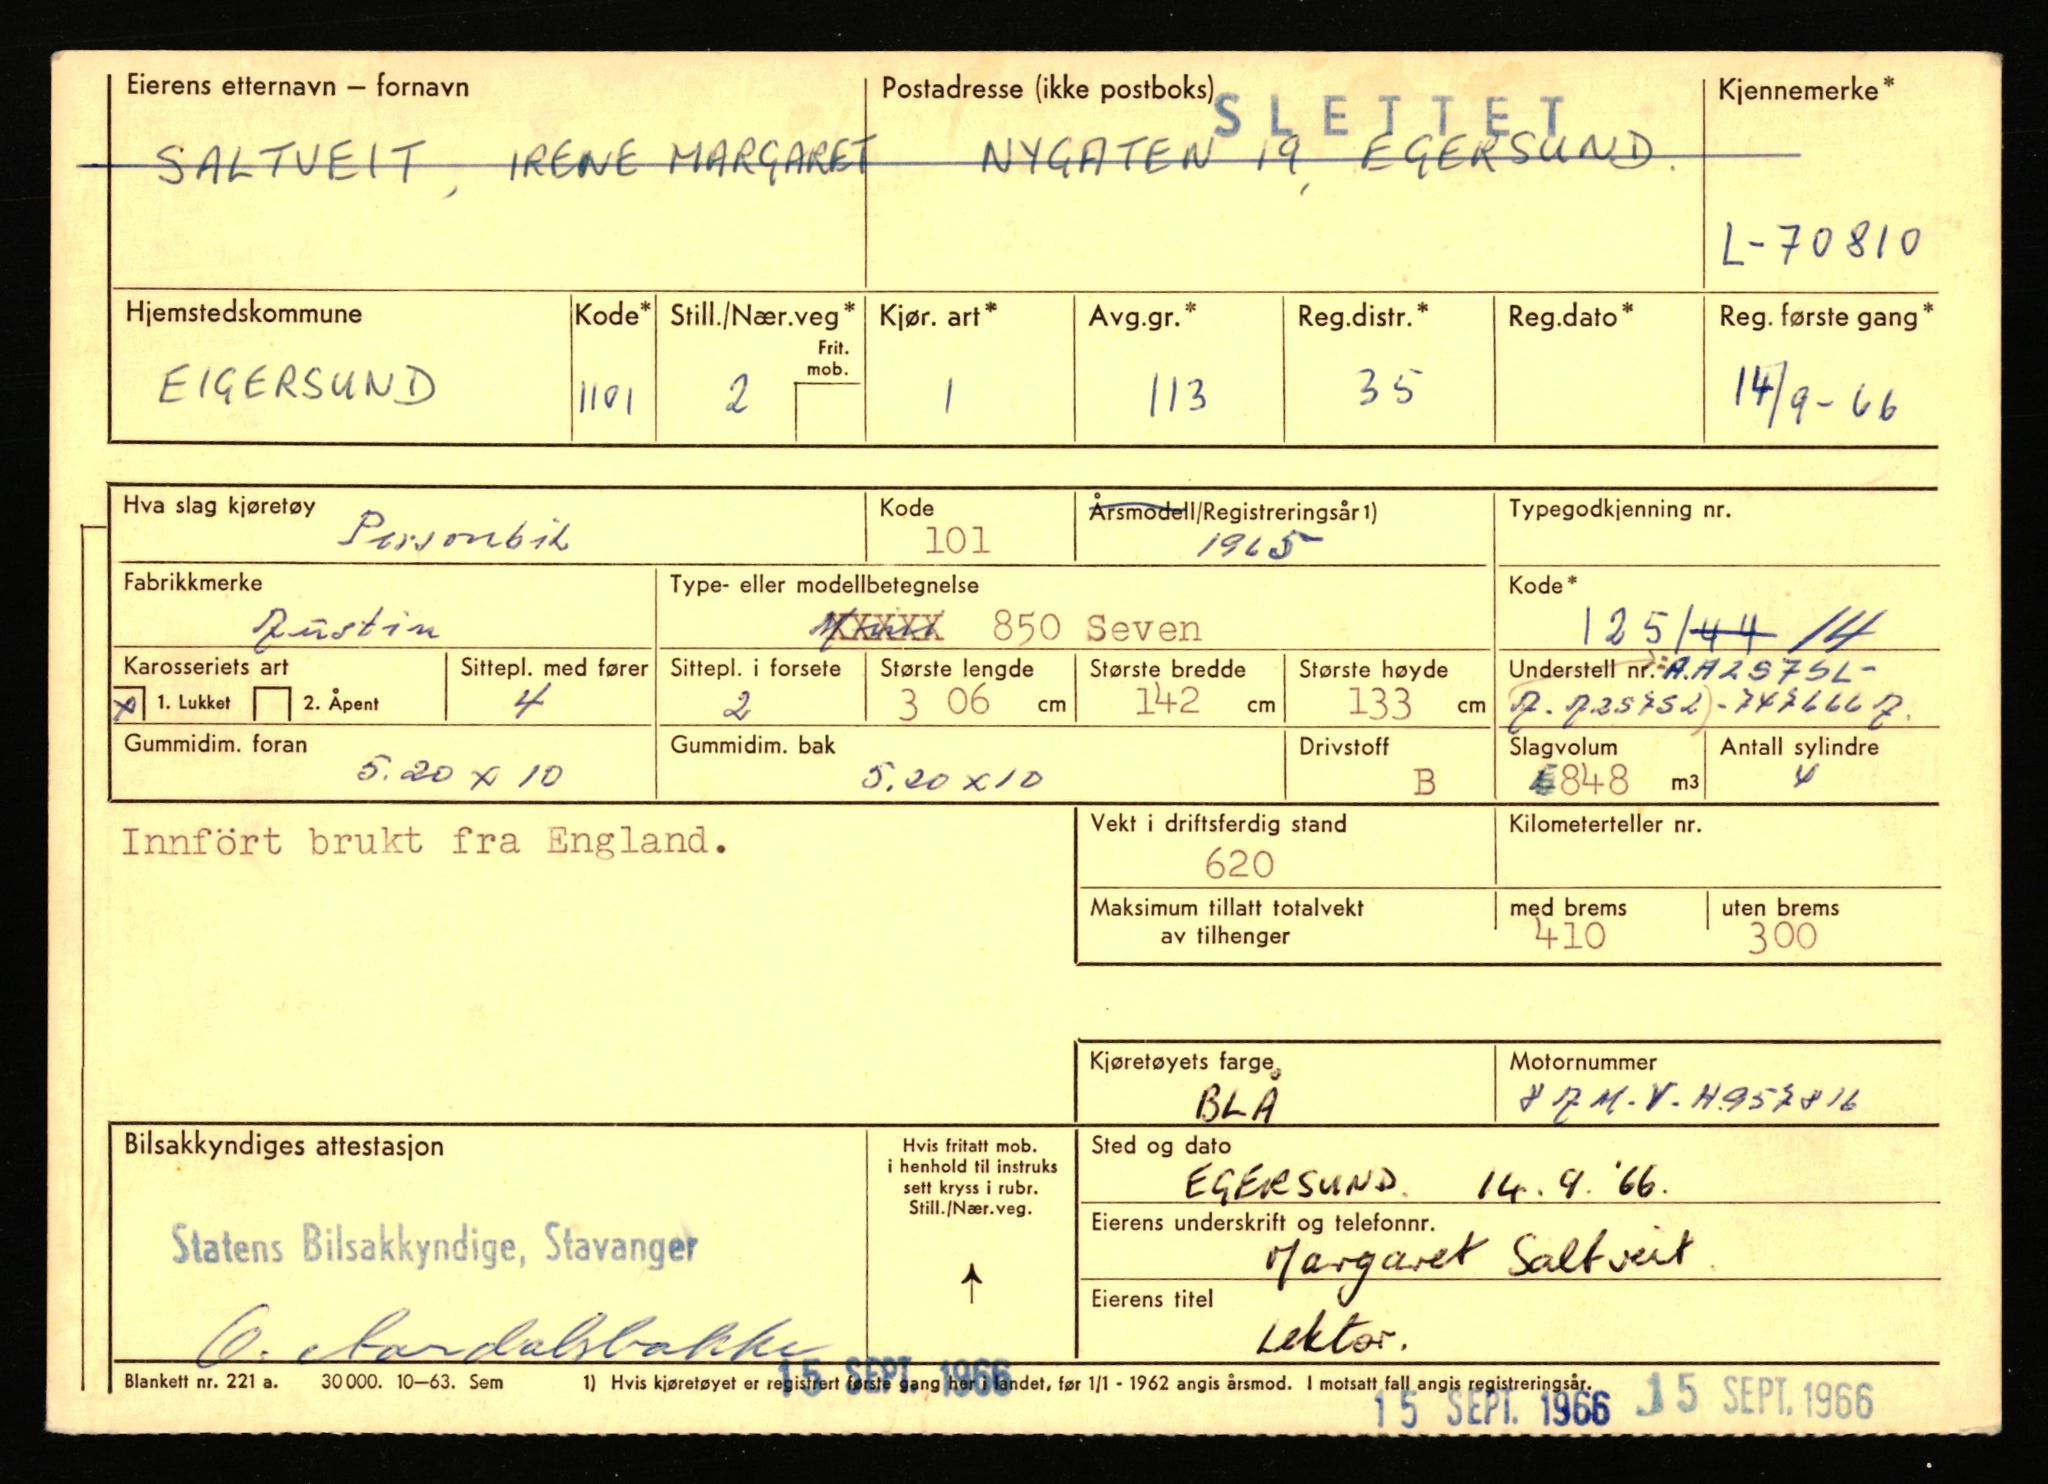 Eierens etternavn – fornavn Postadresse (ikke postboks) Kjennemerke*
SLETTET
SALTVEIT, IRENE MARGARET NYGATEN 19, EGERSUND.
L-70810
Hjemstedskommune Kode* Still./Nær.veg* Kjør. art* Avg.gr.* Reg.distr.* Reg.dato* Reg. første gang*
Frit.
mob.
EIGERSUND 1101 2 1 113 35 14/9-66
Hva slag kjøretøy Kode Årsmodell/Registreringsår1) Typegodkjenning nr.
Personbil 101 1965
Fabrikkmerke Type- eller modellbetegnelse Kode*
Austin 850 Seven 125/44 14
Karosseriets art Sittepl. med fører Sittepl. i forsete Største lengde Største bredde Største høyde Understell nr.: A.A2S7SL-
x 1. Lukket 2. Åpent 4 2 3 06 cm 142 cm 133 cm A.A2S7S2)-747666A.
Gummidim. foran Gummidim. bak Drivstoff Slagvolum Antall sylindre
5.20 x 10 5.20 x 10 B 848 m3 4
Innfört brukt fra England.
Vekt i driftsferdig stand Kilometerteller nr.
620
Maksimum tillatt totalvekt med brems uten brems
av tilhenger 410 300
Kjøretøyets farge Motornummer
BLÅ 8AM-V-H957816
Bilsakkyndiges attestasjon Hvis fritatt mob. Sted og dato
i henhold til instruks
sett kryss i rubr.
Still./Nær.veg.
EGERSUND. 14.9.'66.
Eierens underskrift og telefonnr.
Statens Bilsakkyndige, Stavanger Margaret Saltveit.
Eierens titel
O. Aardalsbakke Lektor.
15 SEPT. 1966
Blankett nr. 221 a. 30000. 10–63. Sem 1) Hvis kjøretøyet er registrert første gang her i landet, før 1/1 - 1962 angis årsmod. I motsatt fall angis registreringsår.
15 SEPT. 1966 15 SEPT. 1966